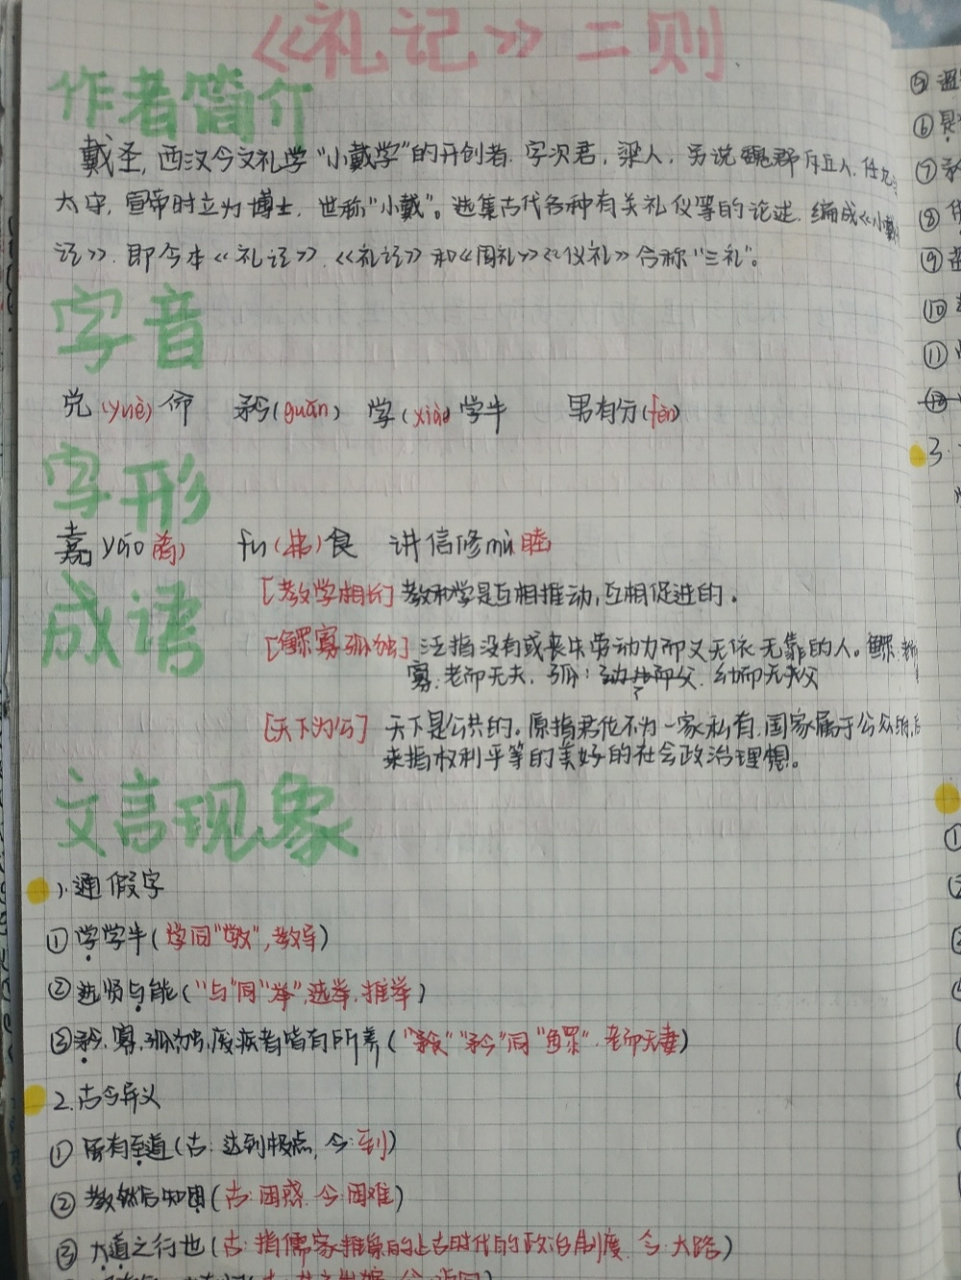 《礼记》二则
作者简介
戴圣,西汉今文礼学“小戴学”的开创者.字次君,梁人,另说魏郡斥丘人.任九
太守,宣帝时立为博士,世称“小戴”。选集古代各种有关礼仪等的论述,编成《小戴
记》.即今本《礼记》.《礼记》和《周礼》《仪礼》合称“三礼”。
字音
兑(yuè)命 矜(guān) 学(xiào)学半 男有分(fèn)
字形
嘉yáo(肴) fu(弗)食 讲信修mù睦
成语
[教学相长]教和学是互相推动,互相促进的.
[鳏寡孤独]泛指没有或丧失劳动力而又无依无靠的人。鳏:
寡:老而无夫. 孤: 幼而无父
[天下为公] 天下是公共的.原指君位不为一家私有.国家属于公众的,后
来指权利平等的美好的社会政治理想。
文言现象
1.通假字
①学学半(学同“敩”,教导)
②选贤与能(“与”同“举”,选举.推举)
③矜、寡、孤、独、废疾者皆有所养(“矜”同“鳏”.老而无妻)
2.古今异义
①虽有至道(古:达到极点,今:到)
②教然后知困(古:困惑.今:困难)
③大道之行也(古:指儒家推崇的上古时代的政治制度.今:大路)
⑤
⑥
⑦
⑧
⑨
⑩
⑪
3.
①